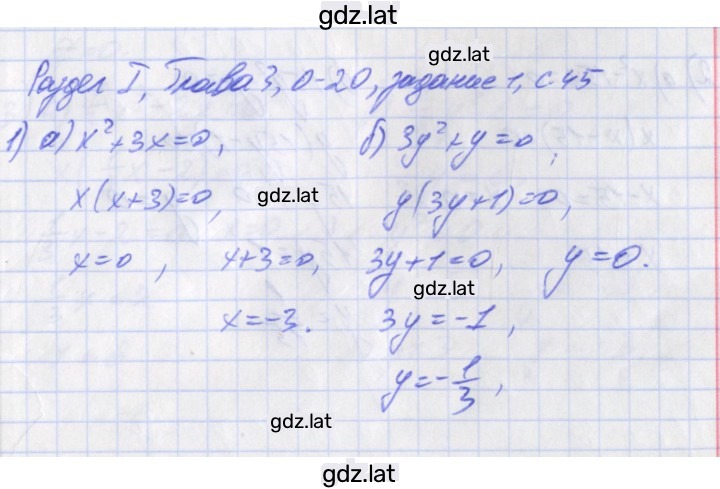 gdz.lat
gdz.lat
Раздел I, Глава 3, О-20, задание 1, с 45
1) а) x²+3x=0, б) 3y²+y=0,
x(x+3)=0, gdz.lat y(3y+1)=0,
x=0, x+3=0, 3y+1=0, y=0.
gdz.lat
x=-3. 3y=-1,
y=-1/3,
gdz.lat
gdz.lat